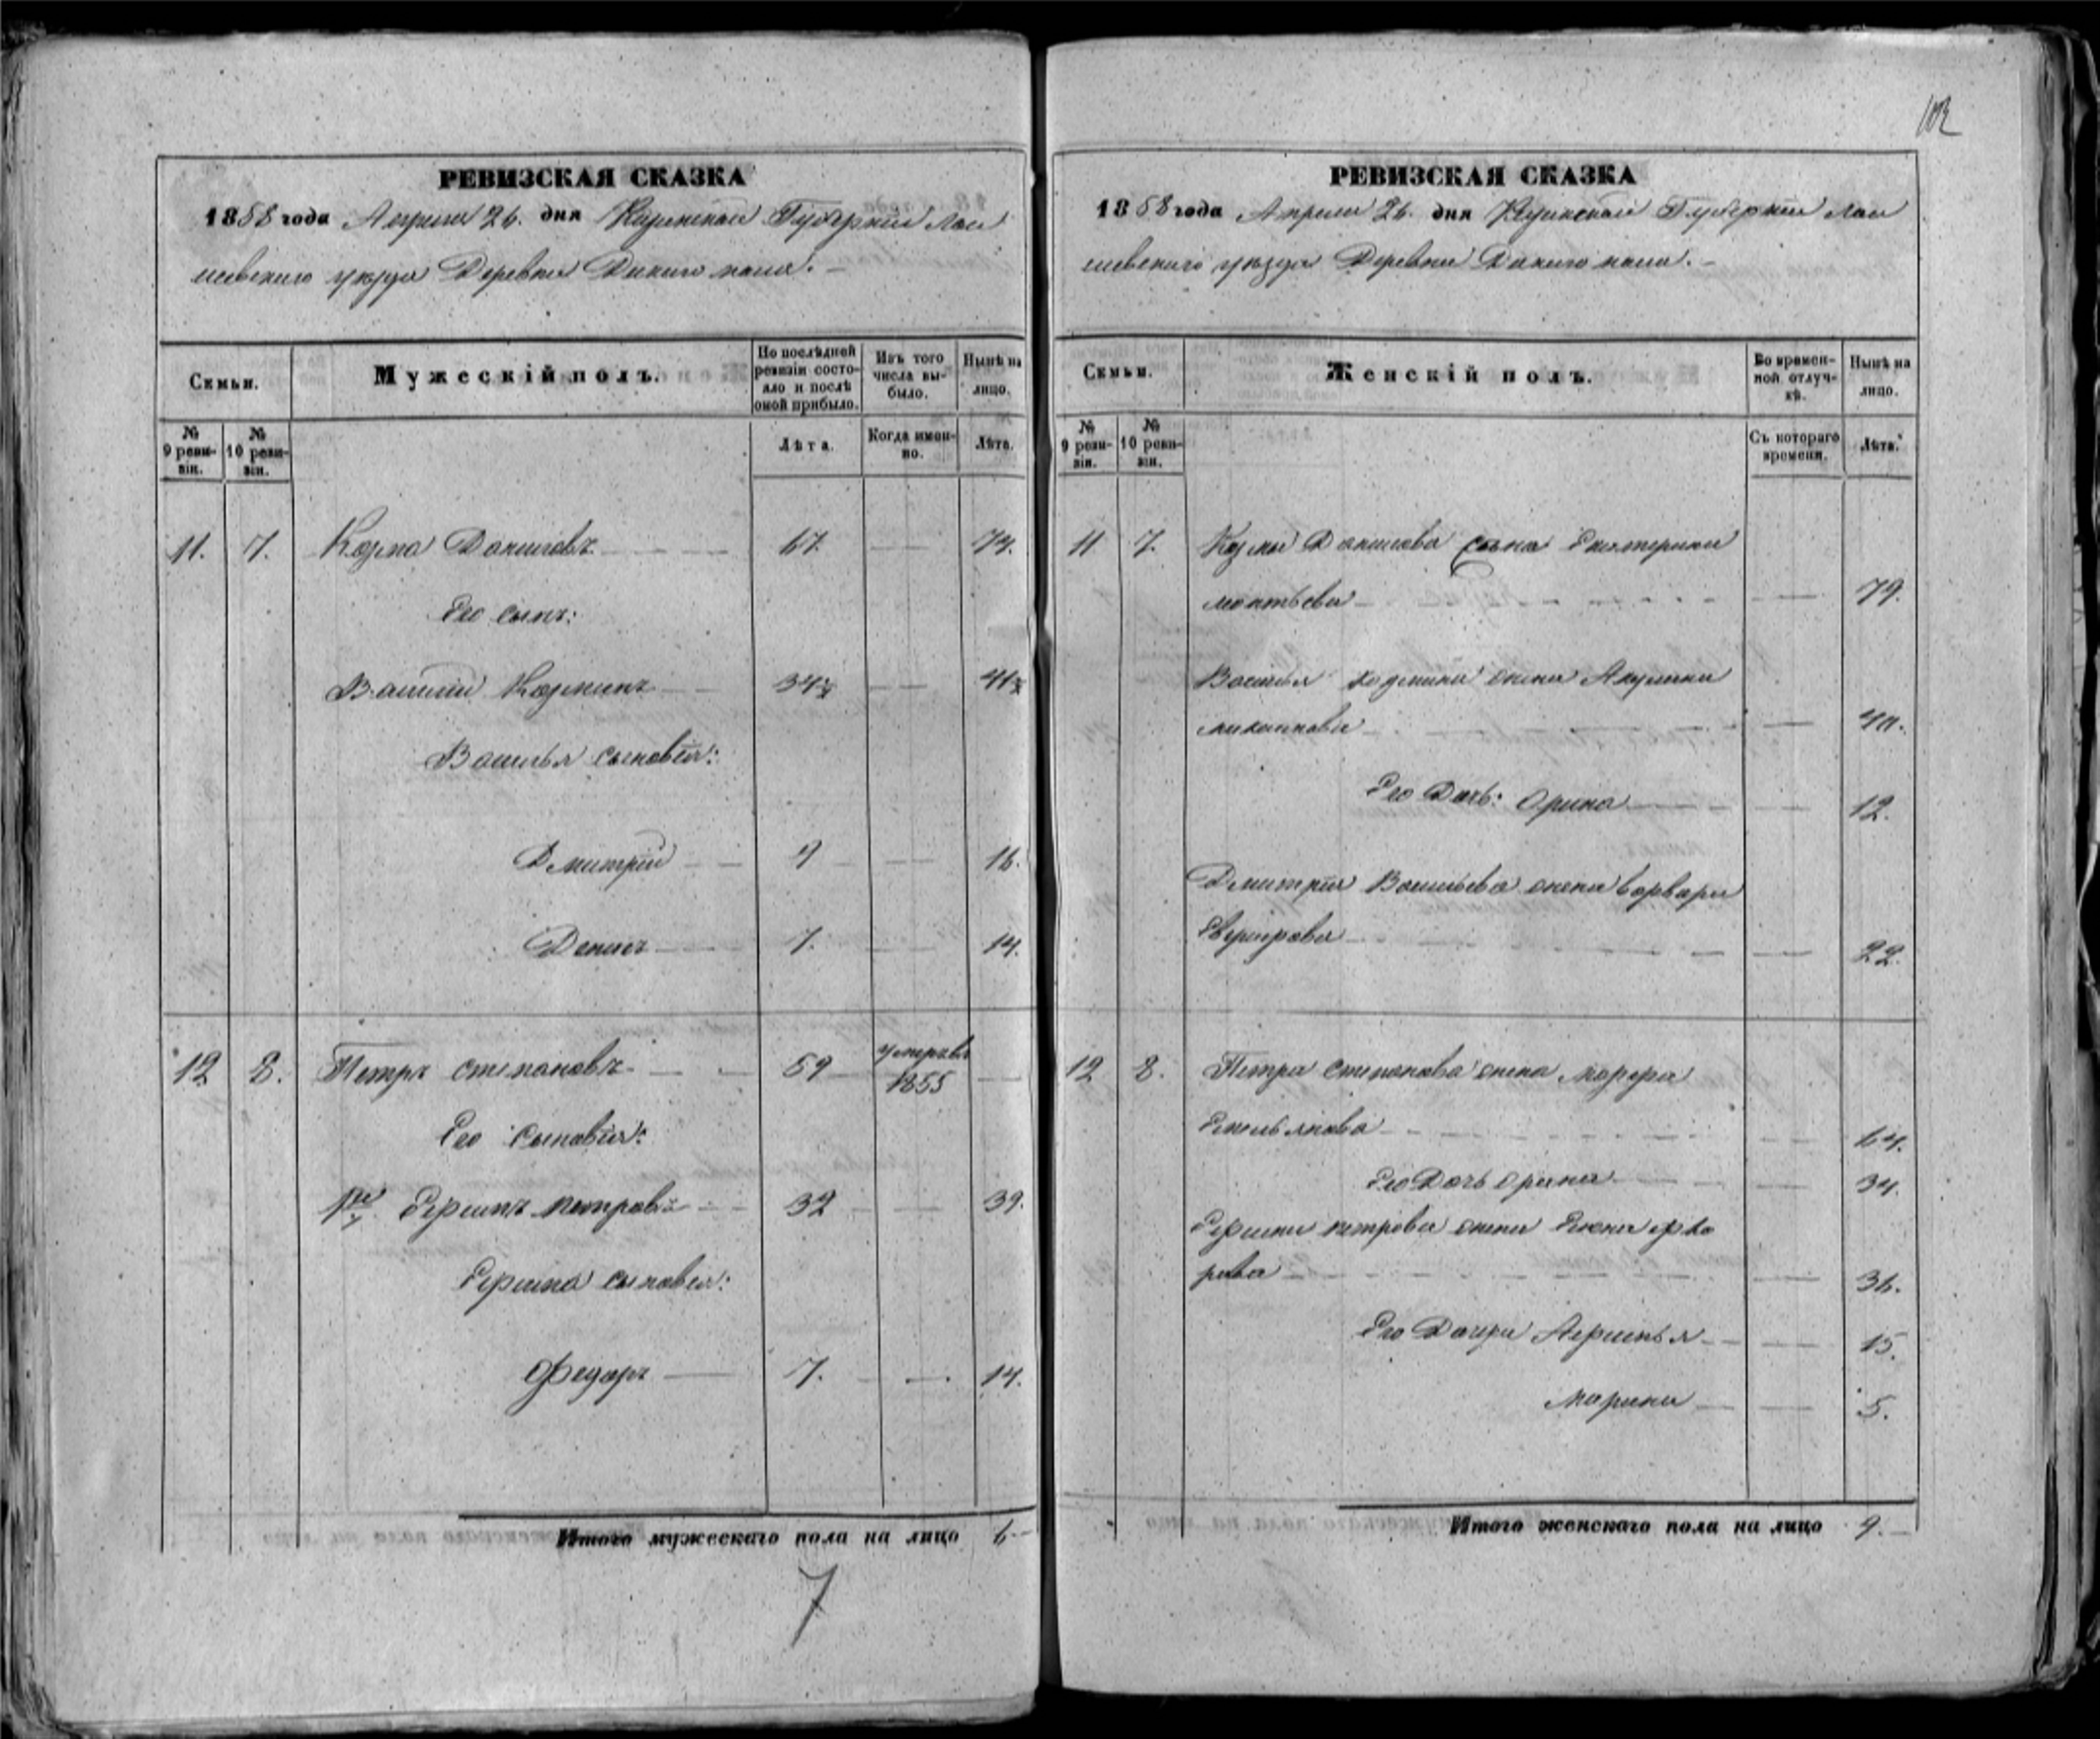 РЕВИЗСКАЯ СКАЗКА
1858 года Апреля 26. дня Казанской Губернии Лаи
шевскаго уезда Деревни Дикаго поля. –
Семьи.
Мужескій полъ.
По послѣдней ревизіи состояло и послѣ оной прибыло.
Изъ того числа выбыло.
Нынѣ на лицо.
№ 9 ревизіи.
№ 10 ревизіи.
Лѣта.
Когда именно.
Лѣта.
11. 7. Козма Даниловъ 67. — 74.
Его сынъ:
Василій Козминъ 34½ — 41½
Василья сыновья:
Дмитрій 9 — 16.
Денисъ 7. — 14.
12 8. Петръ степановъ 59 умеръ въ 1855 —
Его Сыновья:
1й Ефимъ петровъ 32 — 39.
Ефима сыновья:
Федоръ 7. — 14.
Итого мужескаго пола на лицо 6
7
102
РЕВИЗСКАЯ СКАЗКА
1858 года Апреля 26. дня Казанской Губернии Лаи
шевскаго уезда Деревни Дикаго поля. –
Семьи.
Женскій полъ.
Во временной отлучкѣ.
Нынѣ на лицо.
№ 9 ревизіи.
№ 10 ревизіи.
Съ котораго времени.
Лѣта.
11 7. Козмы Данилова жена Екатерина
леонтьева — 79.
Василья Козмина жена Акулина
михаилова — 40.
Его Дочь: Орина — 12.
Дмитрия Васильева жена варвара
— 22.
12 8. Петра степанова жена
Емельянова — 64.
Его Дочь Орина — 34.
Ефима петрова жена Елена Фдо
рова — 36.
Его Дочери — 15.
Марина — 5.
Итого женскаго пола на лицо 9.